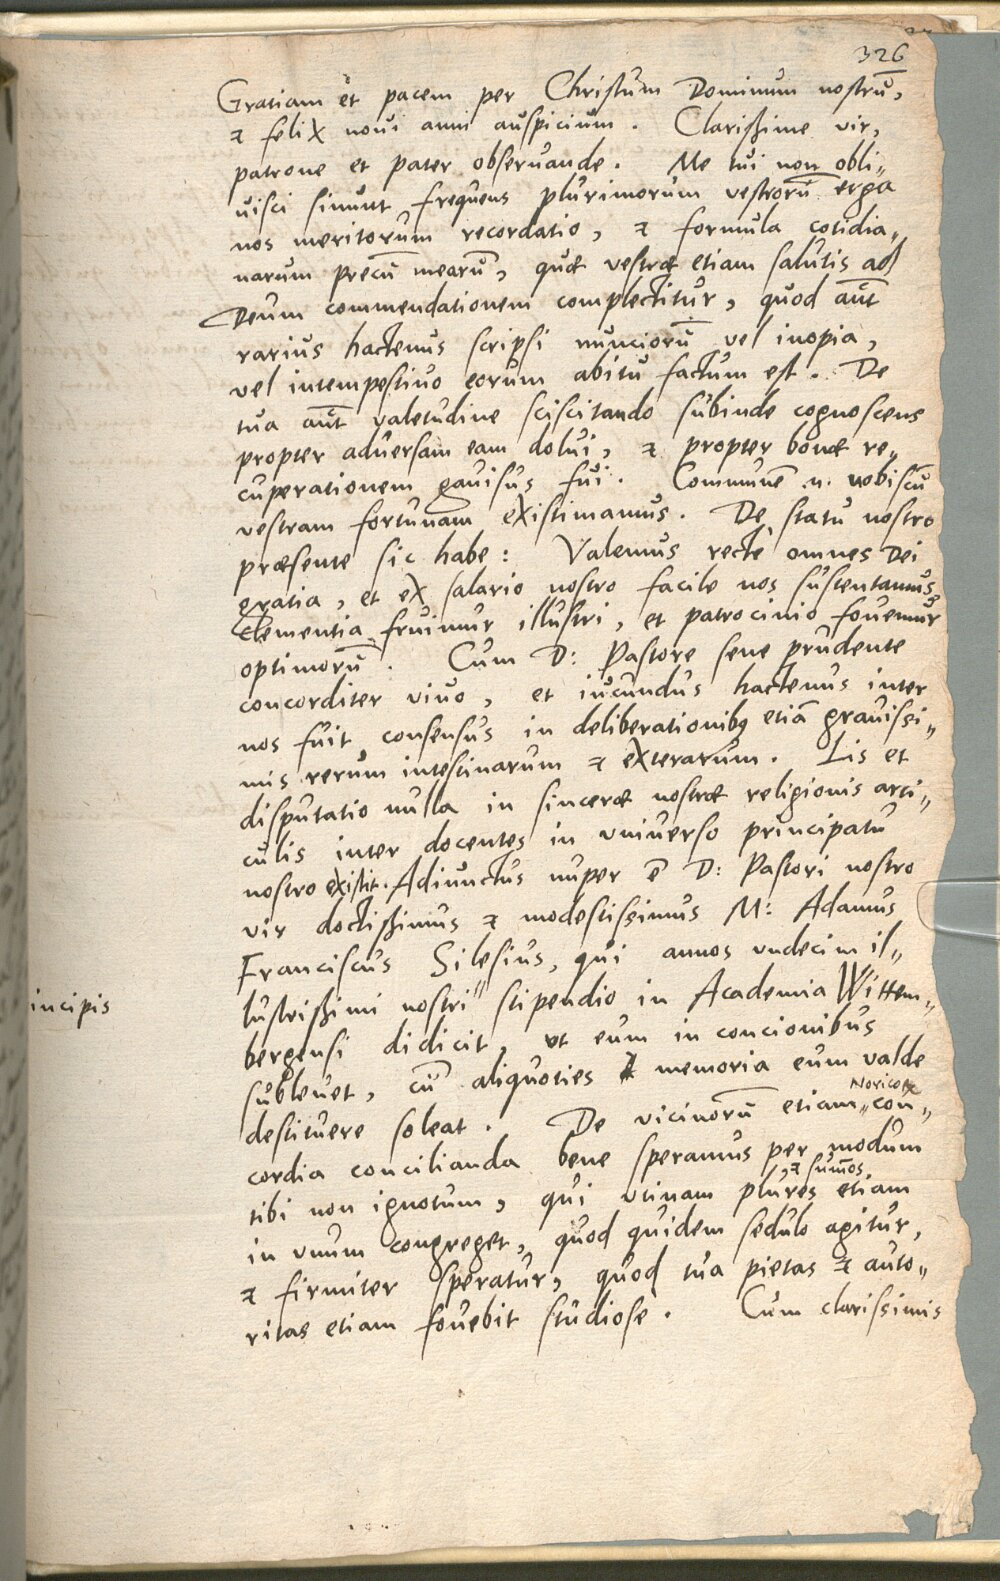 326
Gratiam et pacem per Christum Dominum nostrū,
⁊ felix noui anni auspicium. Clarißime vir,
patrone et pater obseruande. Me tui non obli„
uisci sinunt frequens plurimorum vestrorū erga
nos meritorum recordatio, ⁊ formula cotidia„
narum precū mearū, quæ vestræ etiam salutis ad
Deum commendationem complectitur, quod aūt
rarius hactenus scripsi nunciorū vel inopia,
vel intempestiuo eorum abitu factum est. De
tua aūt valetudine sciscitando subinde cognoscens
propter aduersam eam dolui, ⁊ propter bonæ re„
cuperationem gauisus fui. Communē n. vobiscū
vestram fortunam existimamus. De statu nostro
præsente sic habe: Valemus recte omnes Dei
gratia, et ex salario nostro facile nos sustentamus,
Clementia fruimur illustri, et patrocinio fouemur
optimorū. Cum D: Pastore sene prudente
concorditer viuo, et iucundus hactenus inter
nos fuit consensus in deliberationibꝫ etiā grauissi„
mis rerum intestinarum ⁊ exterarum. Lis et
disputatio nulla in sinceræ nostræ religionis arti„
culis inter docentes in vniuerso principatu
nostro existit. Adiunctus nuper ē D: Pastori nostro
vir doctißimus ⁊ modestissimus M: Adamus
Franciscus Silesius, qui annos vndecim il„
lustrißimi nostri " stipendio in Academia Wittem„
incipis
bergensi didicit, vt eum in concionibus
subleuet, cū aliquoties memoria eum valde
destituere soleat. De vicinorū etiam „con„
Noricoꝝ
cordia concilianda bene speramus per modum
tibi non ignotum, qui vtinam plures etiam
, ⁊ sum̄os
in vnum congreget, quod quidem sedulo agitur,
⁊ firmiter speratur, quod tua pietas ⁊ auto„
ritas etiam fouebit studiose. Cum clarissimis